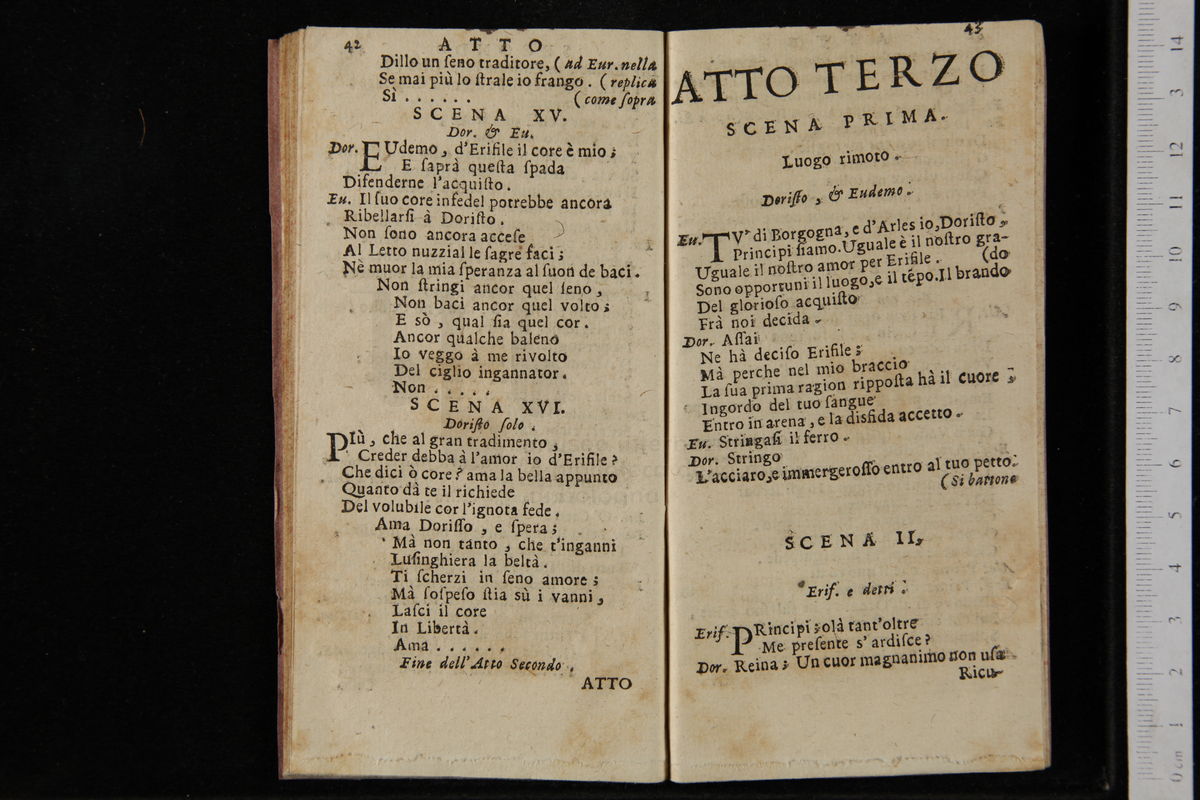 42
ATTO
Dillo un ſeno traditore, ( ad Eur. nella
Se mai più lo ſtrale io frango. ( replica
Sì . . . . . . ( come ſopra
SCENA XV.
Dor. & Eu.
Dor. EUdemo, d'Erifile il core è mio;
E ſaprà queſta ſpada
Difenderne l'acquiſto.
Eu. Il ſuo core infedel potrebbe ancora
Ribellarſi à Doriſto.
Non ſono ancora acceſe
Al Letto nuzzial le ſagre faci;
Nè muor la mia ſperanza al ſuon de baci.
Non ſtringi ancor quel ſeno,
Non baci ancor quel volto;
E sò, qual ſia quel cor.
Ancor qualche baleno
Io veggo à me rivolto
Del ciglio ingannator.
Non . . . . .
SCENA XVI.
Doriſto ſolo.
PIù, che al gran tradimento,
Creder debba à l'amor io d'Erifile?
Che dici ò core? ama la bella appunto
Quanto dà te il richiede
Del volubile cor l'ignota fede.
Ama Doriſſo, e ſpera;
Mà non tanto, che t'inganni
Luſinghiera la beltà.
Ti ſcherzi in ſeno amore;
Mà ſoſpeſo ſtia sù i vanni,
Laſci il core
In Libertà.
Ama . . . . . .
Fine dell'Atto Secondo.
ATTO
43
ATTO TERZO
SCENA PRIMA.
Luogo rimoto.
Doriſto, & Eudemo.
Eu. TV' di Borgogna, e d'Arles io, Doriſto,
Principi ſiamo. Uguale è il noſtro gra-
Uguale il noſtro amor per Erifile. (do
Sono opportuni il luogo, e il tẽpo. Il brando
Del glorioſo acquiſto
Frà noi decida.
Dor. Aſſai
Ne hà deciſo Erifile;
Mà perche nel mio braccio
La ſua prima ragion rippoſta hà il cuore;
Ingordo del tuo ſangue
Entro in arena, e la disfida accetto.
Eu. Stringaſi il ferro.
Dor. Stringo
L'acciaro, e immergeroſſo entro al tuo petto.
( Si battono
SCENA II.
Erif. e detti.
Erif. PRincipi; olà tant'oltre
Me preſente s'ardiſce?
Dor. Reina; Un cuor magnanimo non uſa
Ricu-
0 cm 1 2 3 4 5 6 7 8 9 10 11 12 3 14